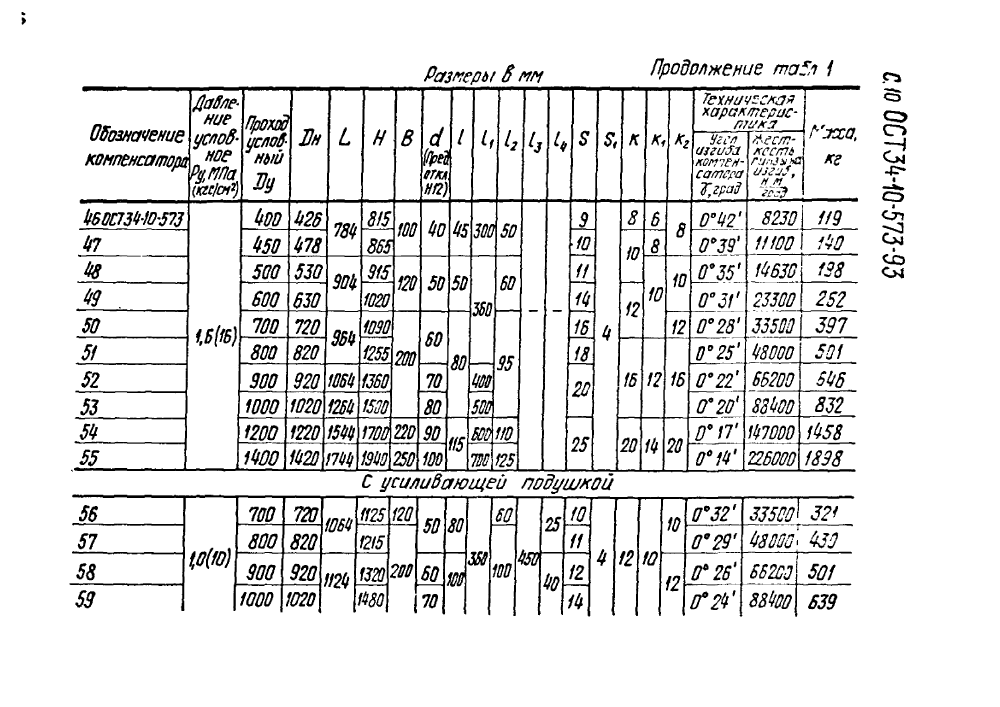 Размеры в мм
Продолжение табл 1
С.10 ОСТ 34-10-573-93
Обозначение компенсатора | Давление условное Ру, МПа (кгс/см²) | Проход условный Ду | Dн | L | H | B | d (Пред. откл. H12) | l | l₁ | l₂ | l₃ | l₄ | S | S₁ | K | K₁ | K₂ | Техническая характеристика | Масса, кг
Угол изгиба компенсатора γ, град | Жесткость изгиба, Н.м/град
46 ОСТ 34-10-573 | 1,6(16) | 400 | 426 | 784 | 815 | 100 | 40 | 45 | 300 | 50 | – | – | 9 | 4 | 8 | 6 | 8 | 0°42' | 8230 | 119
47 | 450 | 478 | 865 | 10 | 10 | 8 | 0°39' | 11100 | 140
48 | 500 | 530 | 904 | 915 | 120 | 50 | 50 | 350 | 60 | 11 | 10 | 10 | 0°35' | 14630 | 198
49 | 600 | 630 | 1020 | 14 | 12 | 0°31' | 23300 | 252
50 | 700 | 720 | 964 | 1090 | 200 | 60 | 80 | 95 | 16 | 12 | 0°28' | 33500 | 397
51 | 800 | 820 | 1255 | 18 | 16 | 12 | 16 | 0°25' | 48000 | 501
52 | 900 | 920 | 1064 | 1360 | 70 | 400 | 20 | 0°22' | 66200 | 546
53 | 1000 | 1020 | 1264 | 1500 | 80 | 500 | 0°20' | 88400 | 832
54 | 1200 | 1220 | 1544 | 1700 | 220 | 90 | 115 | 600 | 110 | 25 | 20 | 14 | 20 | 0°17' | 147000 | 1458
55 | 1400 | 1420 | 1744 | 1940 | 250 | 100 | 700 | 125 | 0°14' | 226000 | 1898
С усиливающей подушкой
56 | 1,0(10) | 700 | 720 | 1064 | 1125 | 120 | 50 | 80 | 350 | 60 | 450 | 25 | 10 | 4 | 12 | 10 | 10 | 0°32' | 33500 | 321
57 | 800 | 820 | 1215 | 200 | 100 | 11 | 0°29' | 48000 | 430
58 | 900 | 920 | 1124 | 1320 | 60 | 100 | 40 | 12 | 12 | 0°26' | 66200 | 501
59 | 1000 | 1020 | 1480 | 70 | 14 | 0°24' | 88400 | 639